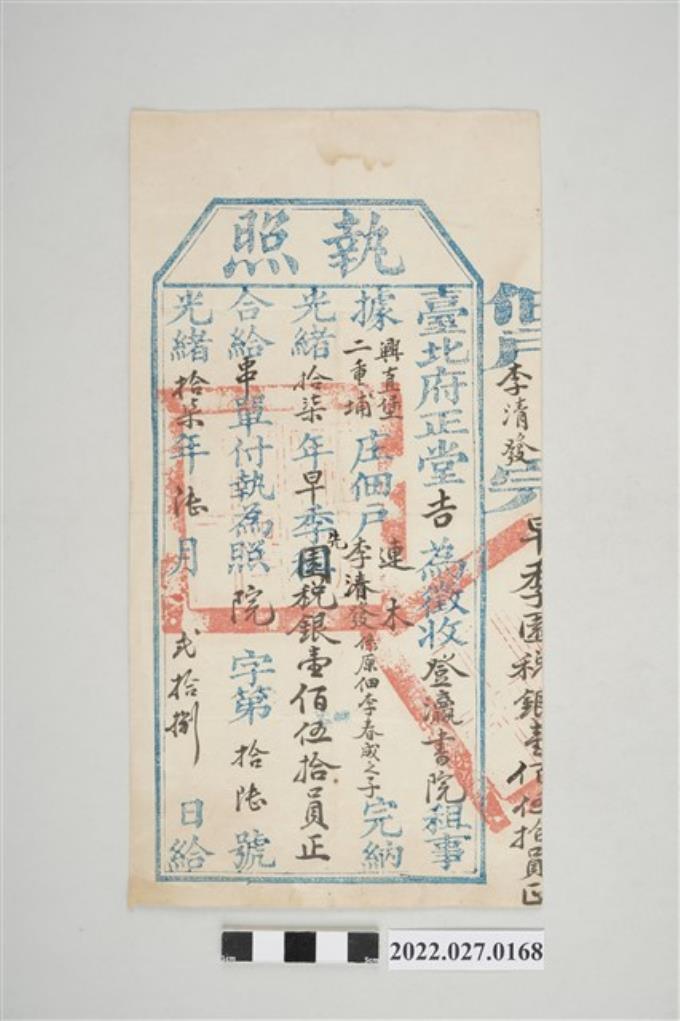 執照
臺北府正堂吉為徵收登瀛書院租事
據興直堡二重埔庄佃戶連木李清發係原佃李春成之子完納
先
光緒拾柒年早季園稅銀壹佰伍拾員正
合給串單付執為照院字第拾陸號
光緒拾柒年陸月弍拾捌日給
佃戶李清發完
早季園稅銀壹佰伍拾員正
2022.027.0168